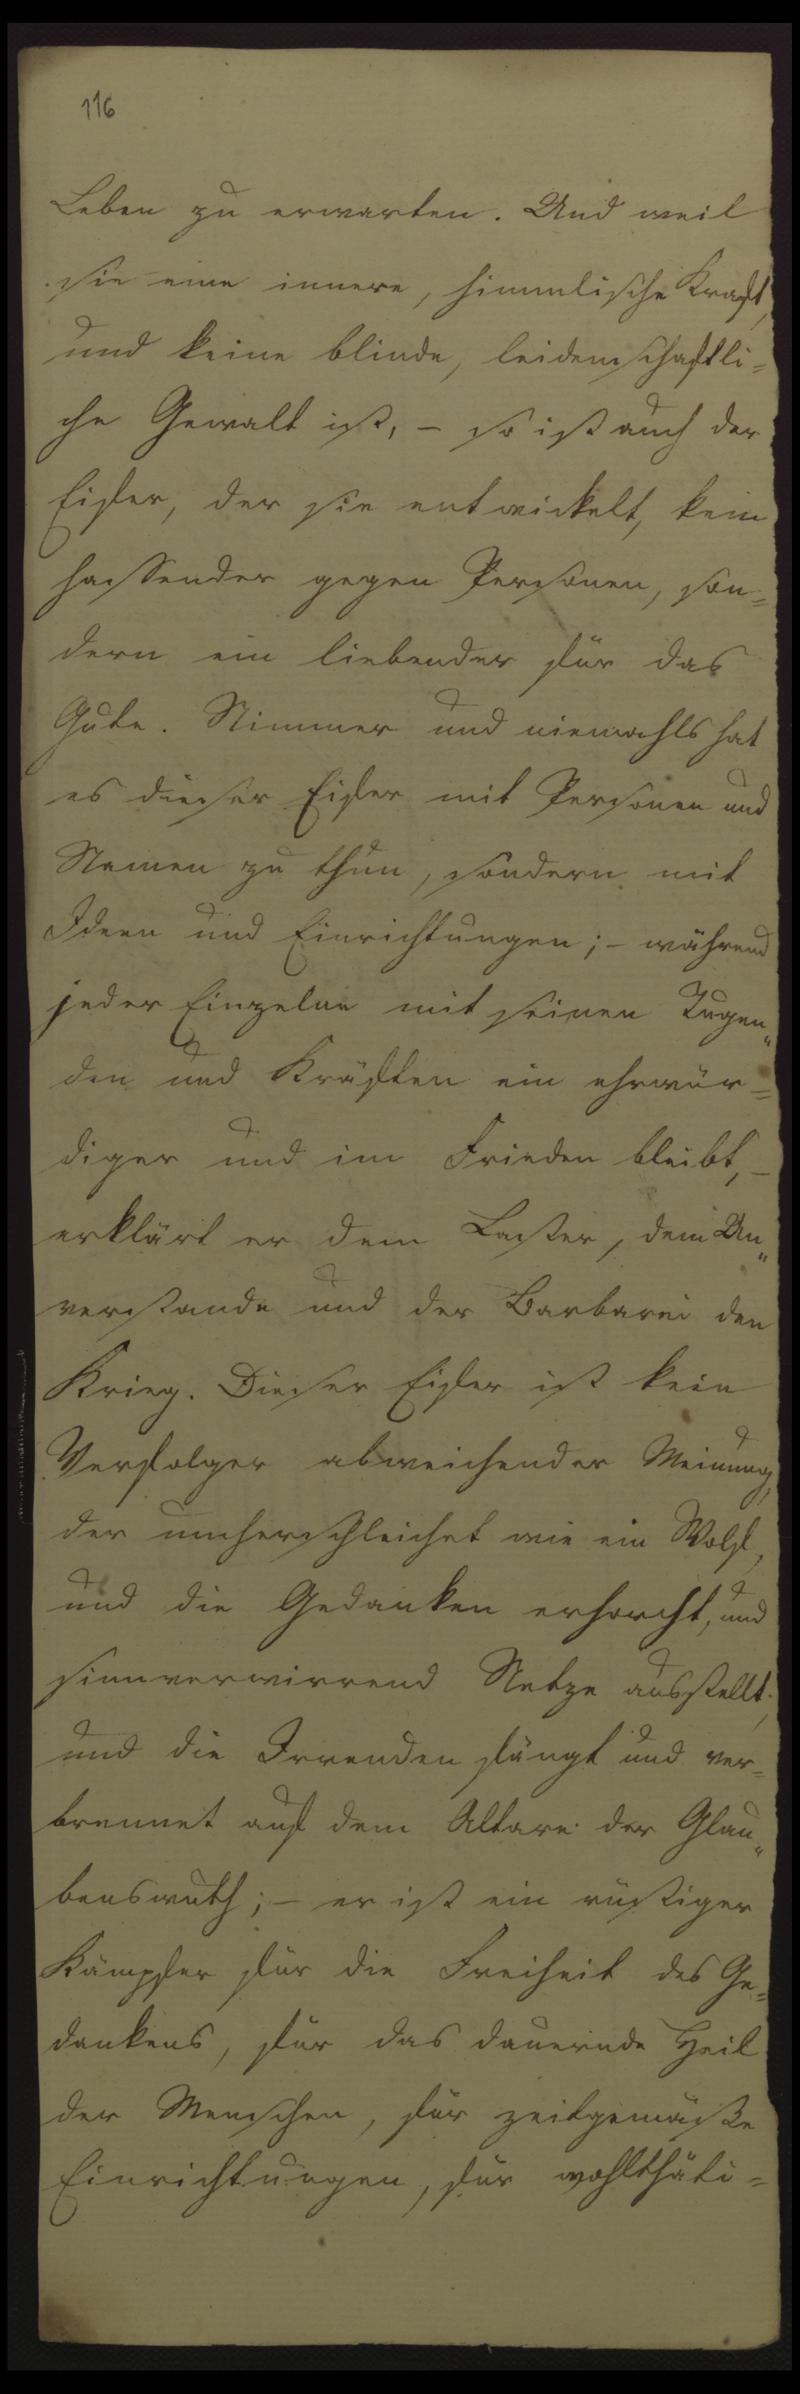 116
Leben zu erwarten. Und weil
sie eine innere, himmlische Kraft,
und keine blinde, leidenschaftli=
che Gewalt ist, – so ist auch der
Eifer, der sie entwickelt, kein
hassender gegen Personen, son=
dern ein liebender für das
Gute. Nimmer und niemahls hat
es dieser Eifer mit Personen und
Namen zu thun, sondern mit
Ideen und Einrichtungen; – während
jeder Einzelne mit seinen Tugen„
den und Kräften ein ehrwür=
diger und im Frieden bleibt, –
erklärt er dem Laster, dem Un„
verstande und der Barbarei den
Krieg. Dieser Eifer ist kein
Verfolger abweichender Meinung,
der umherschleichet wie ein Wolf,
und die Gedanken erhorcht, und
sinnverwirrend Netze ausstellt,
und die Irrenden fängt und ver=
brennet auf dem Altare der Glau„
benswuth; – er ist ein rüstiger
Kämpfer für die Freiheit des Ge=
dankens, für das dauernde Heil
der Menschen, für zeitgemäße
Einrichtungen, für wohlthäti=